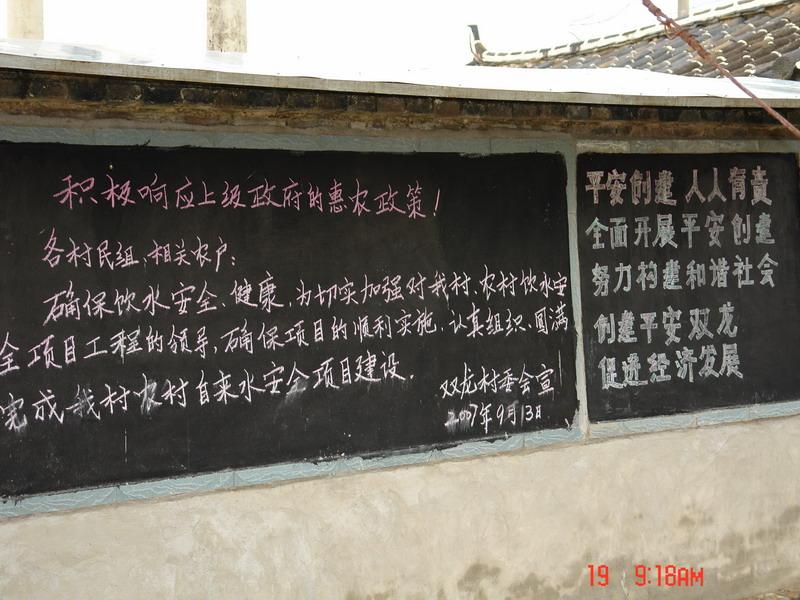 积极响应上级政府的惠农政策！
各村民组、相关农户：
确保饮水安全、健康，为切实加强对我村、农村饮水安
全项目工程的领导，确保项目的顺利实施，认真组织、圆满
完成我村农村自来水安全项目建设。
双龙村委会宣
2007年9月13日
平安创建 人人有责
全面开展平安创建
努力构建和谐社会
创建平安双龙
促进经济发展
19 9:18AM